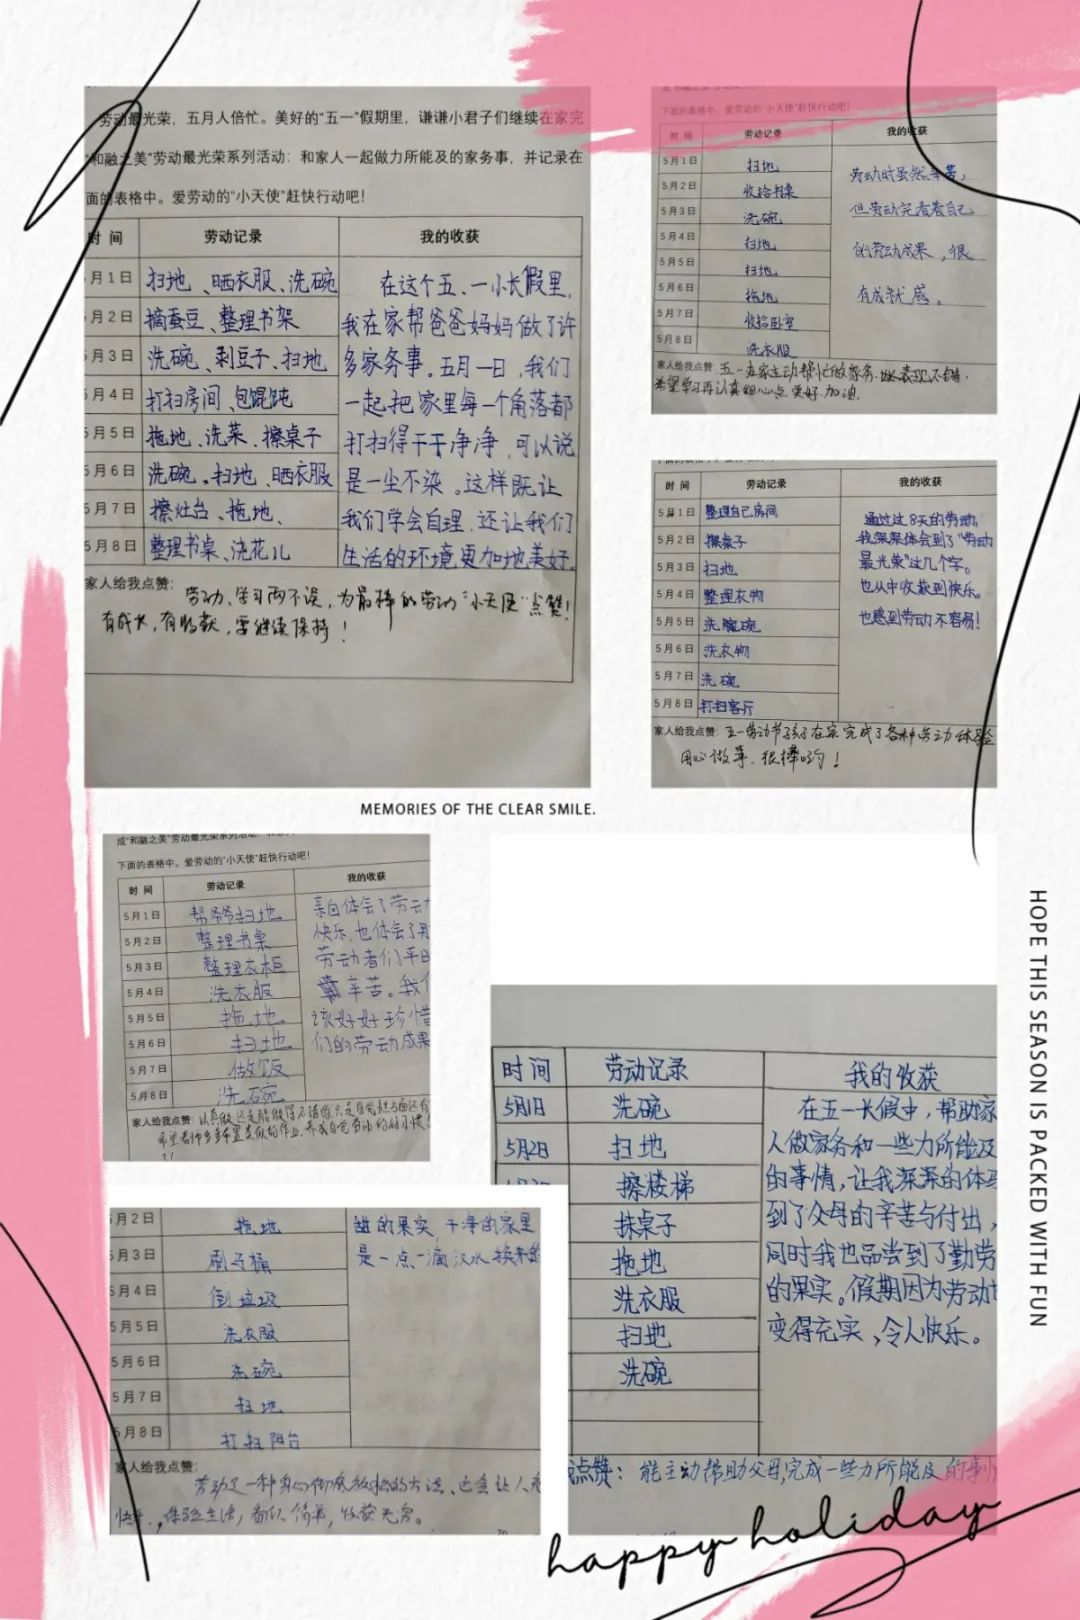 劳动最光荣，五月人倍忙。美好的“五一”假期里，谦谦小君子们继续在家完
“和融之美”劳动最光荣系列活动：和家人一起做力所能及的家务事，并记录在
面的表格中。爱劳动的“小天使”赶快行动吧！
时 间 劳动记录 我的收获
月1日 扫地、晒衣服、洗碗
月2日 摘蚕豆、整理书架
月3日 洗碗、剥豆子、扫地
5月4日 打扫房间、包馄饨
5月5日 拖地、洗菜、擦桌子
5月6日 洗碗、扫地、晒衣服
5月7日 擦灶台、拖地、
5月8日 整理书桌、浇花儿
在这个五、一小长假里，
我在家帮爸爸妈妈做了许
多家务事。五月一日，我们
一起把家里每一个角落都
打扫得干干净净，可以说
是一尘不染。这样既让
我们学会自理，还让我们
生活的环境更加地美好。
家人给我点赞：
劳动、学习两不误，为最棒的劳动“小天使”点赞！
有成长，有收获，要继续保持！
下面的表格中。爱劳动的“小天使”赶快行动吧！
时 间 劳动记录 我的收获
5月1日 扫地
5月2日 收拾书桌
5月3日 洗碗
5月4日 扫地
5月5日 扫地
5月6日 拖地
5月7日 收拾卧室
5月8日 洗衣服
劳动时虽然辛苦，
但劳动完看着自己
的劳动成果，很
有成就感。
家人给我点赞：五一在家主动帮忙做家务，表现不错，
希望学习再认真细心点更好，加油。
时 间 劳动记录 我的收获
5月1日 整理自己房间
5月2日 擦桌子
5月3日 扫地
5月4日 整理衣物
5月5日 洗碗
5月6日 洗衣物
5月7日 洗碗
5月8日 打扫客厅
通过这8天的劳动，
我深深体会到了“劳动
最光荣”这几个字。
也从中收获到快乐。
也感到劳动不容易！
家人给我点赞：五一劳动节孩子在家完成了各种劳动体验
用心做事、很棒哟！
MEMORIES OF THE CLEAR SMILE.
成“和融之美”劳动最光荣系列活动：
下面的表格中。爱劳动的“小天使”赶快行动吧！
时 间 劳动记录 我的收获
5月1日 帮爷爷扫地
5月2日 整理书桌
5月3日 整理衣柜
5月4日 洗衣服
5月5日 拖地
5月6日 扫地
5月7日 做饭
5月8日 洗碗
亲自体会了劳动
快乐，也体会了那
劳动者们平日
辛苦。我们
该好好珍惜
们的劳动成果
家人给我点赞：
HOPE THIS SEASON IS PACKED WITH FUN
时间 劳动记录 我的收获
5月1日 洗碗
5月2日 扫地
擦楼梯
抹桌子
拖地
洗衣服
扫地
洗碗
在五一长假中，帮助家
人做家务和一些力所能及
的事情，让我深深的体
到了父母的辛苦与付出，
同时我也品尝到了勤劳
的果实。假期因为劳动
变得充实，令人快乐。
点赞：能主动帮助父母完成一些力所能及的事
5月2日 拖地
5月3日 刷马桶
5月4日 倒垃圾
5月5日 洗衣服
5月6日 洗碗
5月7日 扫地
5月8日 打扫阳台
的果实，干净的家里
是一点一滴汗水换来的
家人给我点赞：
劳动是一种身心彻底放松的方法、也会让人
体验生活，看似简单，收获无穷。
happy holiday